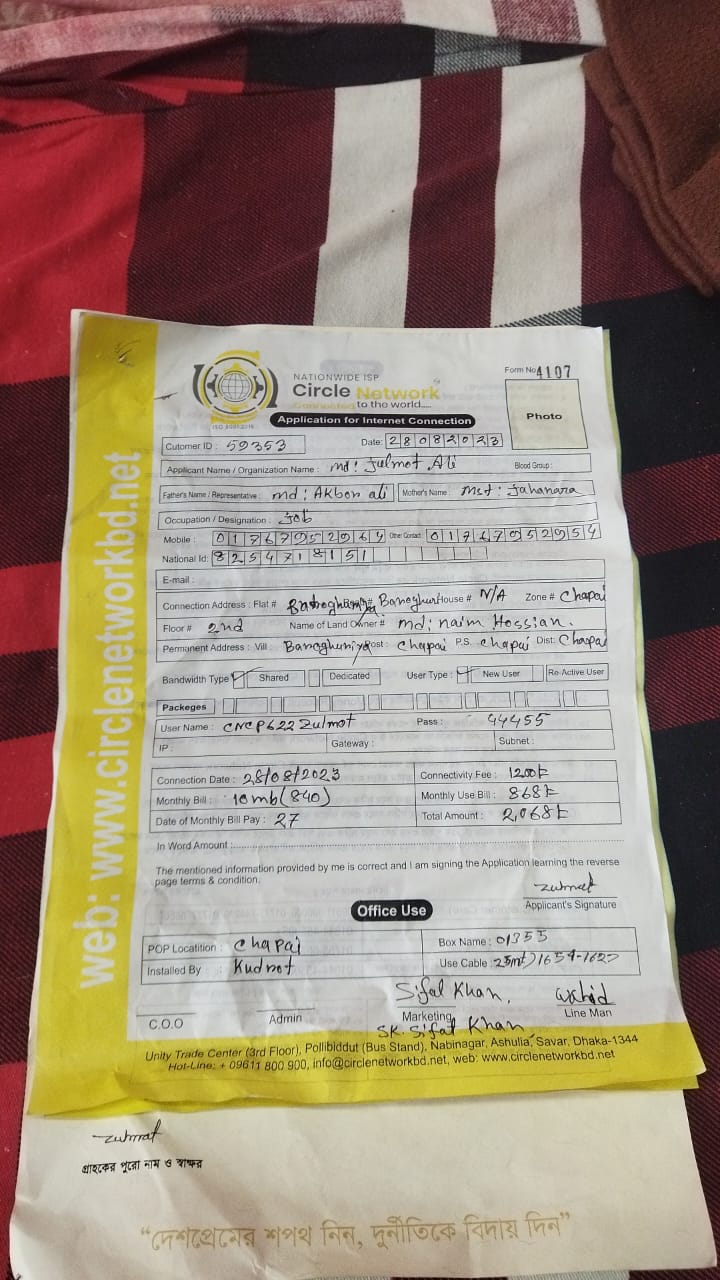 web: www.circlenetworkbd.net
NATIONWIDE ISP
Circle Network
Connected to the world.....
ISO 9001:2015
Form No 4107
Photo
Application for Internet Connection
Cutomer ID : 59353
Date: 28082023
Applicant Name / Organization Name : md: Julmot Ali Blood Group :
Father's Name / Representative : md: Akbor ali Mother's Name : Mst: Jahanara
Occupation / Designation : Job
Mobile : 01767952964 Other Contact 01767952954
National Id: 8254718151
E-mail :
Connection Address : Flat # House # N/A Zone # Chapai
Floor # 2nd Name of Land Owner # md: naim Hossian.
Permanent Address : Vill : Post : Chapai P.S. Chapai Dist: Chapai
Bandwidth Type Shared Dedicated User Type : New User Re-Active User
Packeges
User Name : CNCP622 Zulmot Pass : 44455
IP : Gateway : Subnet :
Connection Date : 28/08/2023 Connectivity Fee : 1200৳
Monthly Bill : 10mb (840) Monthly Use Bill : 868৳
Date of Monthly Bill Pay : 27 Total Amount : 2,068৳
In Word Amount :
The mentioned information provided by me is correct and I am signing the Application learning the reverse
page terms & condition.
Zulmat
Applicant's Signature
Office Use
POP Locatition : Chapai Box Name : 01355
Installed By : Kudrot Use Cable :
Sifat Khan, Wahid
C.O.O Admin Marketing Line Man
SK. Sifat Khan
Unity Trade Center (3rd Floor), Pollibiddut (Bus Stand), Nabinagar, Ashulia, Savar, Dhaka-1344
Hot-Line: + 09611 800 900, info@circlenetworkbd.net, web: www.circlenetworkbd.net
Zulmat
গ্রাহকের পুরো নাম ও স্বাক্ষর
“দেশপ্রেমের শপথ নিন, দুর্নীতিকে বিদায় দিন”